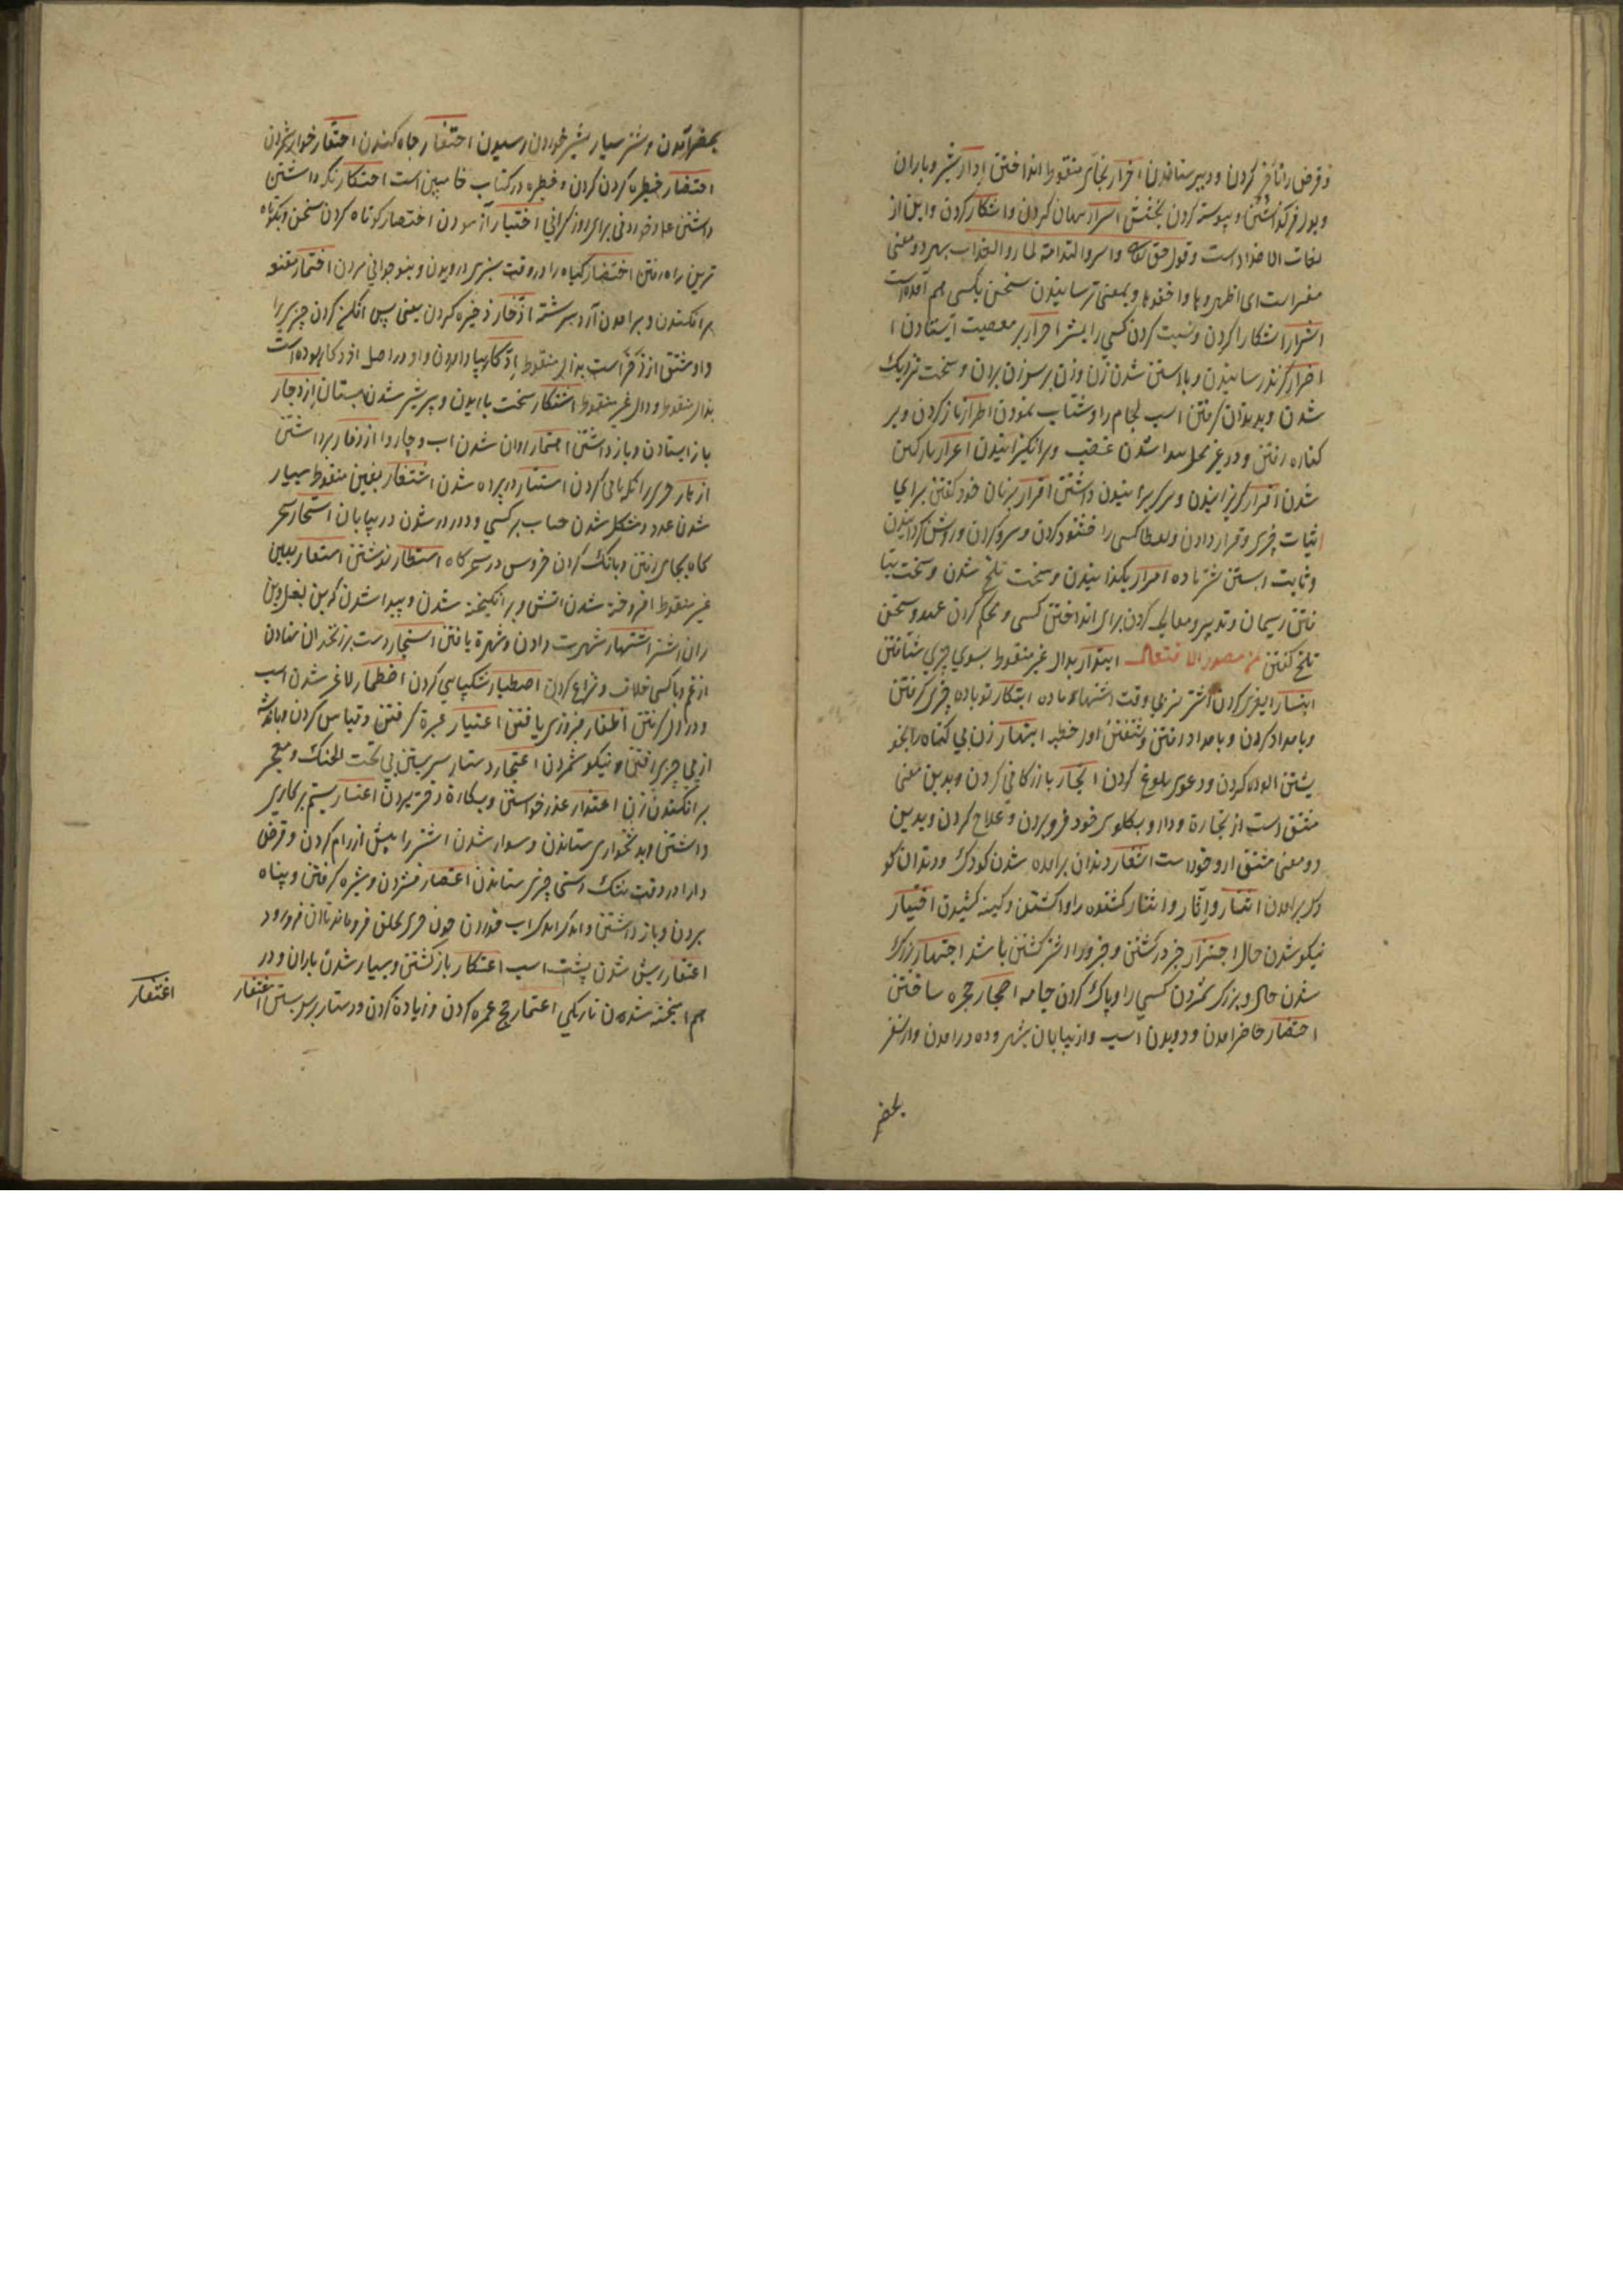 و قرض را تأخیر کردن و دبیر ستاندن اخرار بخای منقوط انداختن ادرار شیر و باران
و بول فرو گذاشتن و پیوسته کردن بخشش اسرار پنهان کردن و آشکار کردن و این از
لغات الاضداد است و قول حق تعالی و اسروا الندامة لما راوا العذاب بهر دو معنی
مفسر است ای اظهروها و اخفوها و بمعنی رسانیدن سخن بکسی هم آمده است
اشرار آشکارا کردن و نسبت کردن کسی را بشر اصرار بر معصیت ایستادن
اضرار گزند رسانیدن و با شدن زن و زن بر سر زن بردن و سخت نزدیک
شدن و بدندان گرفتن اسب لجام را و شتاب نمودن اطرار ناز کردن و بر
کناره رفتن و در غیر محل پیدا شدن غضب و برانگیزانیدن اعرار بارکین
شدن افرار گریزانیدن و سر بر داشتن اقرار بزبان خود گفتن برای
اثبات چیزی و قرار دادن و بعطا کسی را خشنود کردن و سرد کردن و روشن گردانیدن
و ثابت آبستن شتر ماده امرار بگذرانیدن و سخت تلخ شدن و سخت
تافتن ریسمان و تدبیر و معالجه کردن برای انداختن کسی و محکم کردن عهد و سخن
تلخ گفتن من مصدر الافتعال ابتدار بدال غیر منقوط بسوی چیزی شتافتن
ابتسار کردن شتر نر بی وقت اشتهای ماده ابتکار نوباوه چیزی گرفتن
و بامداد کردن و بامداد رفتن و شنفتن اول خطبه ابتهار زن بی گناه را بخو
یشتن آلوده کردن و دعوی بدروغ کردن اتجار بازرگانی کردن و بدین معنی
مشتق است از تجارة و دارو بگلوی خود فرو بردن و علاج کردن و بدین
دو معنی مشتق از وجور است اثغار دندان برآمدن شدن کودک و دندان کو
دک برآمدن اتئار و اثار و اثئار کشنده را واکشتن و کینه کشیدن اختیار
نیکو شدن حال اجتزار جزر کشتن و جزور اشتر کشتنی باشد اجتهار بزرگ
شدن حال و بزرگ شمردن کسی را و پاک کردن جامه احتجار حجره ساختن
احتضار حاضر آمدن و دویدن اسب و از بیابان بشهر و ده درآمدن و از سفر
بحضر
بحضر آمدن و شتر بسیار شیر خوردن رسیدن احتفار چاه کندن احتقار خوار شمردن
احتظار خطیره کردن و خطیره در کتاب خا مبین است احتکار نگه داشتن
داشتن غله و خوردنی برای روز گرانی اختیار آزمودن اختصار کوتاه کردن سخن و بکوتاه
ترین راه رفتن اختضار گیاه را در وقت سبزی درویدن و بنوجوانی مردن اختمار مقنعه
برافکندن و برآمدن آرد سرشته ادخار ذخیره کردن یعنی پس افکن کردن چیزی را
و او مشتق از ذخر است بذال منقوط ادکار بیاد آوردن و او در اصل اذدکار بوده است
بذال منقوط و دال غیر منقوط اشتکار سخت باریدن و پر شیر شدن پستان ازدجار
باز ایستادن و باز داشتن روان شدن آب و چاروا ازدفار برداشتن
از بار چیزی را نگهبانی کردن استتار در پرده شدن اشتغار بغین منقوط بسیار
شدن عدد و مشکل شدن حساب بر کسی و دور در شدن در بیابان استحار سحر
گاه بجای رفتن و بانگ کردن خروس در سحرگاه استطار نوشتن استعار بعین
غیر منقوط افروخته شدن آتش و برانگیخته شدن و پیدا شدن گر بین بغل و بین
ران اشتر اشتهار شهرت دادن و شهرة یافتن اشتجار دست بر زنخدان نهادن
از غم و با کسی خلاف و نزاع کردن اصطبار شکیبایی کردن اضطمار لاغر شدن اسب
و در اول گرفتن اظفار فیروزی یافتن اعتبار عبرة گرفتن و قیاس کردن و باندیشه
از پی چیزی رفتن و نیکو شمردن اعتجار دستار بر سر بستن بی تحت الحنک و معجر
برافکندن زن اعتذار عذر خواستن و بکارة دختر بردن اعتسار بستم بر کاری
داشتن و بدشخواری ستاندن و سوار شدن اشتر را پیش از رام کردن و قرض
دار را در وقت تنگ دستی چیزی ستاندن اعتصار فشردن و شیره گرفتن و پناه
بردن و باز داشتن و اندک اندک آب خوردن چون چیزی بحلق فرو ماند تا آن فرو رود
اعتقار ریش شدن پشت اسب اعتکار باز گشتن و بسیار شدن باران و در
هم آمیخته شدن تاریکی اعتمار حج عمره کردن و زیاده کردن و دستار بر سر بستن اغتفار
اغتفار